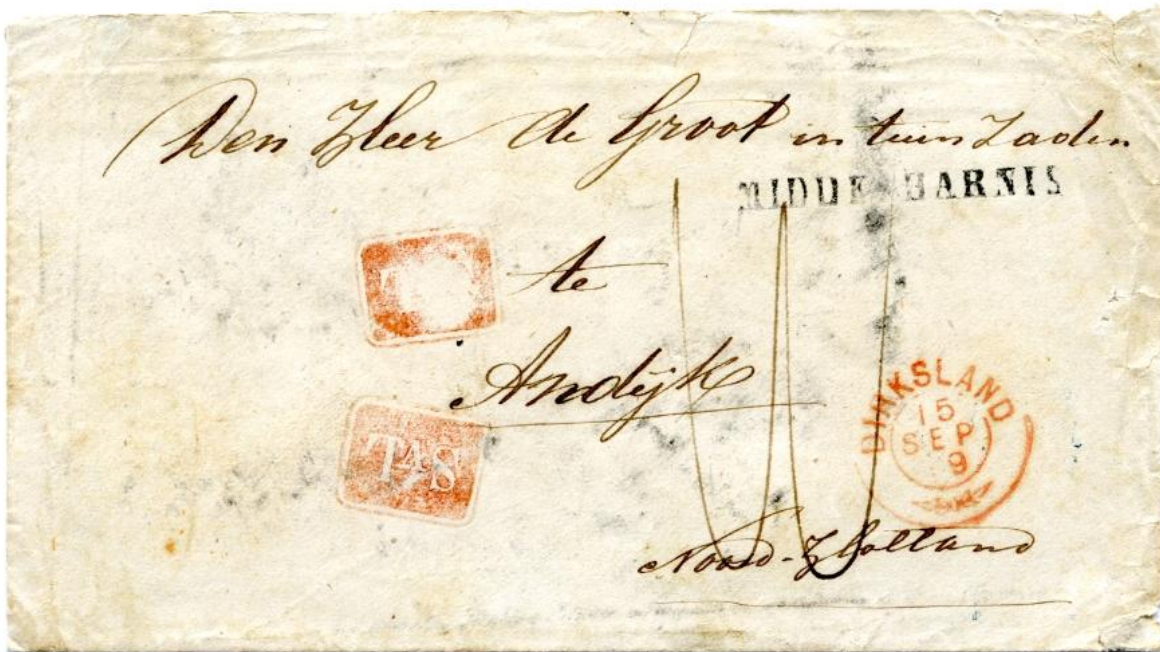 Den Heer de Groot in tuin Zaden
MIDDE HARNIS
te
Andijk
DIRKSLAND
15
SEP
9
Noord-Holland